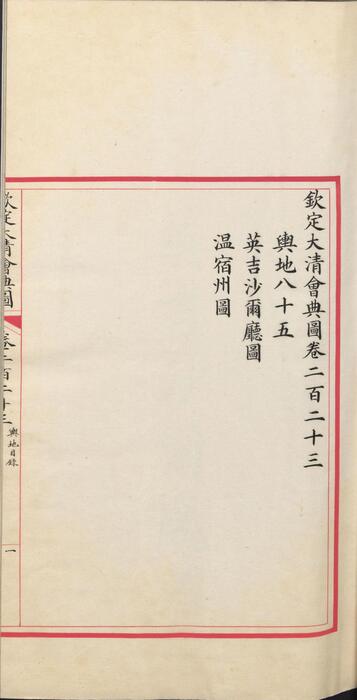 欽定大清會典圖卷二百二十三
輿地八十五
英吉沙爾廳圖
溫宿州圖
欽定大清會典圖
卷二百二十三
輿地目錄
一